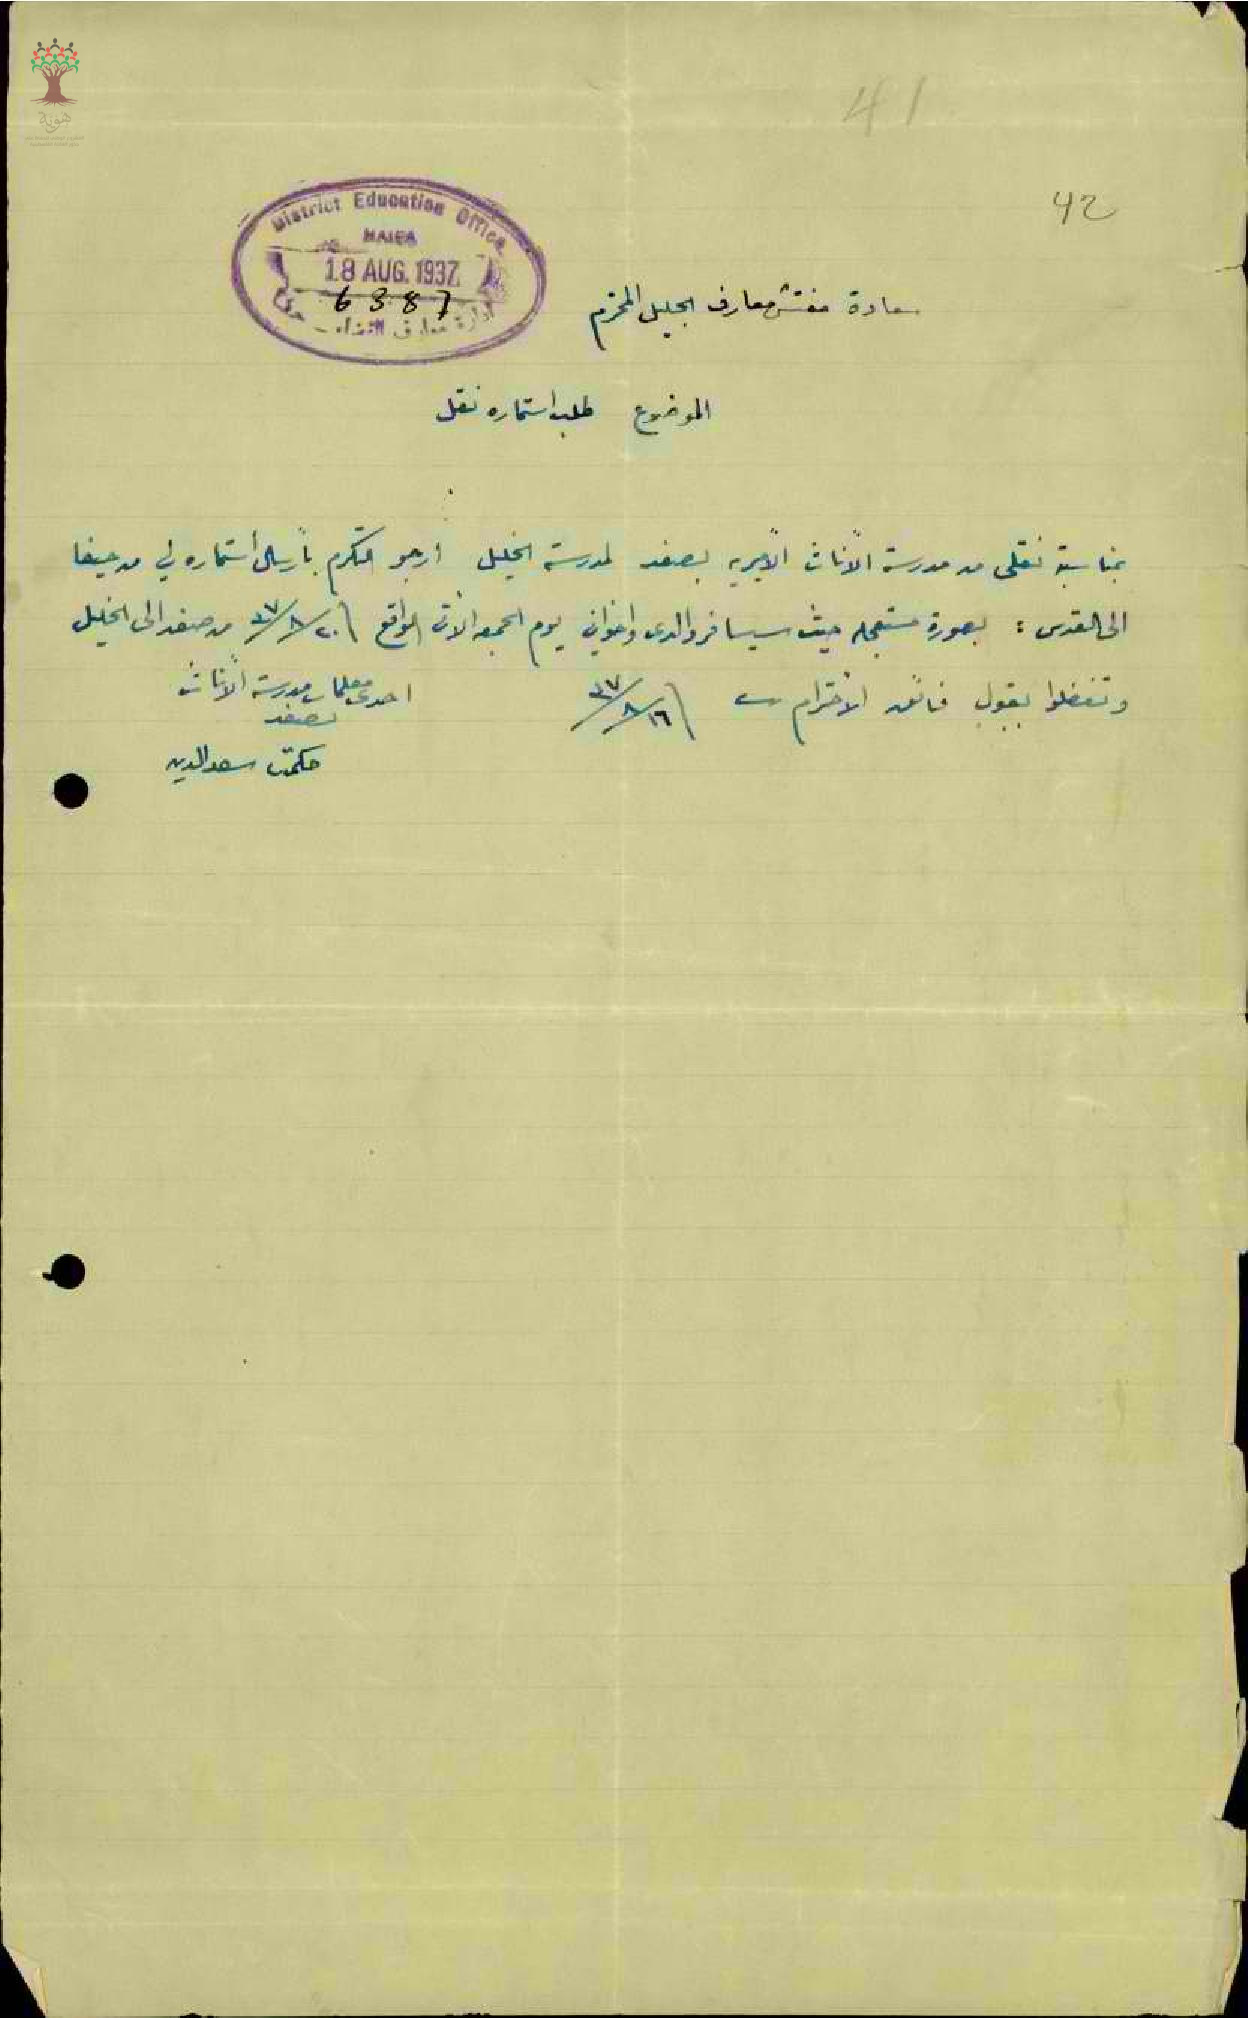 هوية
41
42
District Education Office
HAIFA
18 AUG. 1937
6387
ادارة معارف اللواء - حيفا
سعادة مفتش معارف الجليل المحترم
الموضوع طلب استماره نقل
بمناسبة نقلي من مدرسة الأناث الأميريه بصفد لمدرسة الخليل أرجو التكرم بأرسال أستماره لي من حيفا
الى القدس : بصورة مستعجله حيث سيسافر والدي واخواني يوم الجمعه الآتي الواقع ٢٠/٨/٣٧ من صفد الى الخليل
وتفضلوا بقبول فائق الأحترام ١٦/٨/٣٧
احدى معلمات مدرسة الأناث
بصفد
حكمت سعد الدين